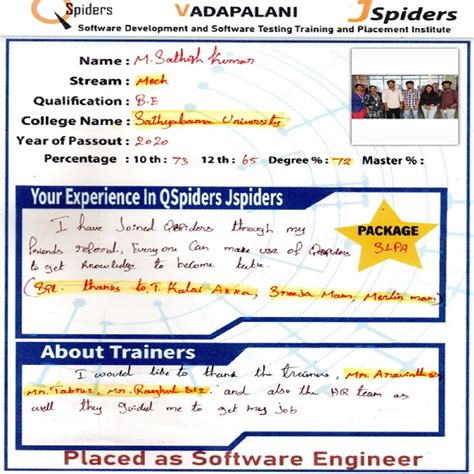 QSpiders VADAPALANI JSpiders
Software Development and Software Testing Training and Placement Institute
Name : M. Sathish Kumar
Stream : Mech
Qualification : B.E
College Name : Sathyabama University
Year of Passout : 2020
Percentage : 10 th : 73 12 th : 65 Degree % : 72 Master % :
Your Experience In QSpiders Jspiders
I have Joined QSpiders through my
friends referal, Everyone Can make use of QSpiders
to get knowledge to become
PACKAGE
(SPL. thanks to, T. Kalai Akka, Sreeja Mam, Merlin mam)
About Trainers
I would like to thank the trainers, Mr. Aravinth
Mr. Tabruz, Mr. Raghul and also the HR team as
well they guided me to get my Job
Placed as Software Engineer